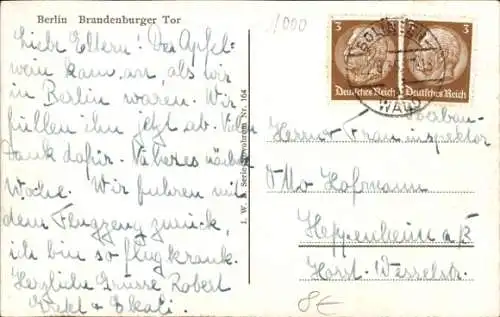 Berlin Brandenburger Tor
Liebe Eltern! Der Apfel-
wein kam an, als wir
in Berlin waren. Wir
füllen ihn jetzt ab. Vielen
Dank dafür. Näheres nächste
Woche. Wir fuhren mit
dem Flugzeug zurück,
ich bin so flugkrank.
Herzliche Grüsse Robert
Gretel +
J. W. B. Serie Nr. 164
3 3
Deutsches Reich Deutsches Reich
SOLINGEN
WALD
Herrn
Otto Hofmann
Heppenheim a/B
Horst-Wesselstr.
8€
1000